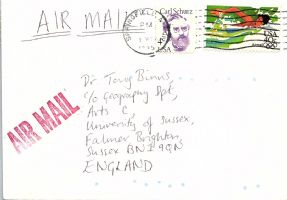 AIR MAIL
Carl Schurz
USA
USA
AIR MAIL
Dr Tony Binns,
c/o Geography Dpt,
Arts C,
University of Sussex,
Falmer Brighton,
Sussex BN1 9QN
ENGLAND